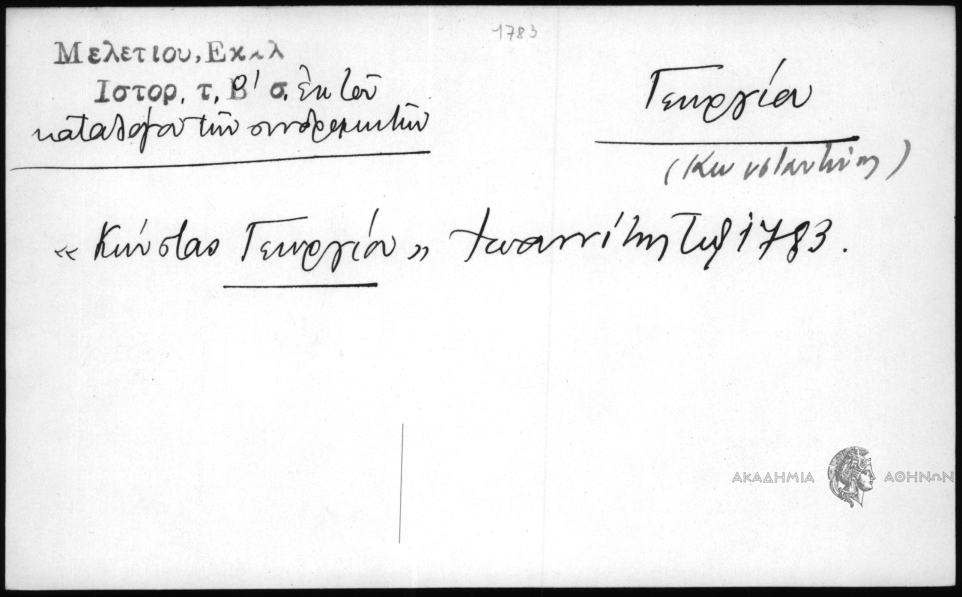 1783
Μελετίου, Εκκλ
Ιστορ. τ. Β' σ. ἐκ τοῦ
καταλόγου τῶν συνδρομητῶν
Γεωργίου
(Κωνσταντῖνος)
« Κώνστας Γεωργίου» Ἰωαννίτης τῷ 1783.
ΑΚΑΔΗΜΙΑ ΑΘΗΝΩΝ